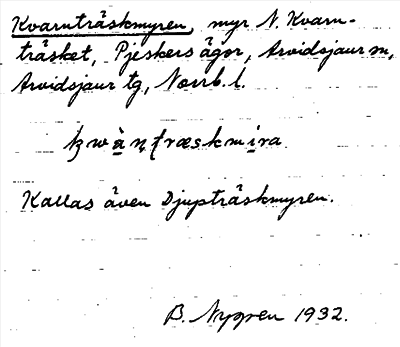 Kvarnträskmyren, myr N. Kvarn-
träsket, Pjeskers ägor, Arvidsjaur sn,
Arvidsjaur tg, Norrb. l.
kwànträskmira
Kallas även Djupträskmyren.
B. Nygren 1932.